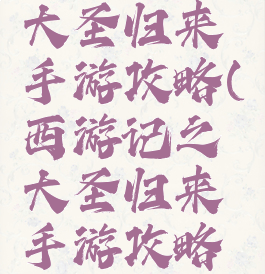 大圣归来
手游攻略(
西游记之
大圣归来
手游攻略